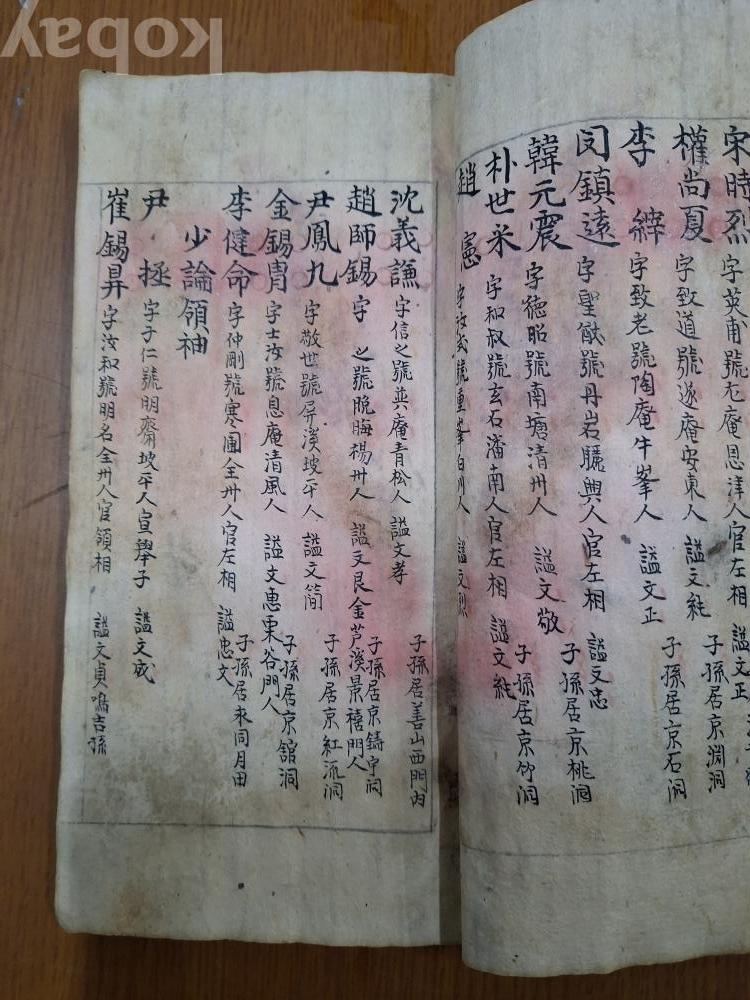 kobay
宋時烈 字英甫號尤庵恩津人官左相 諡文正
權尙夏 字致道號遂庵安東人 諡文純 子孫居京淵洞
李縡 字致老號陶庵牛峯人 諡文正 子孫居京石洞
閔鎮遠 字聖猷號丹岩驪興人官左相 諡文忠
韓元震 字德昭號南塘淸州人 諡文敬 子孫居京桃洞
朴世采 字和叔號玄石潘南人官左相 諡文純 子孫居京竹洞
趙憲 字汝式號重峯白川人 諡文烈
沈義謙 字信之號巽庵青松人 諡文孝 子孫居善山西門內
趙師錫 字 之號晩晦楊州人 諡文艮金芦溪景禧門人 子孫居京鑄字洞
尹鳳九 字敬世號屛溪坡平人 諡文簡 子孫居京紅流洞
金錫胄 字士汝號息庵清風人 諡文惠東谷門人 子孫居京舘洞
李健命 字仲剛號寒圃全州人官左相 諡忠文 子孫居東同月田
少論領袖
尹拯 字子仁號明齋坡平人官舉子 諡文成
崔錫昇 字汝和號明名全州人官領相 諡文貞鳴吉孫